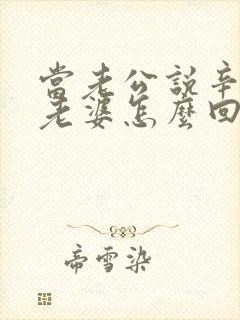 當老公說辛
老婆怎麼回
帝雪染